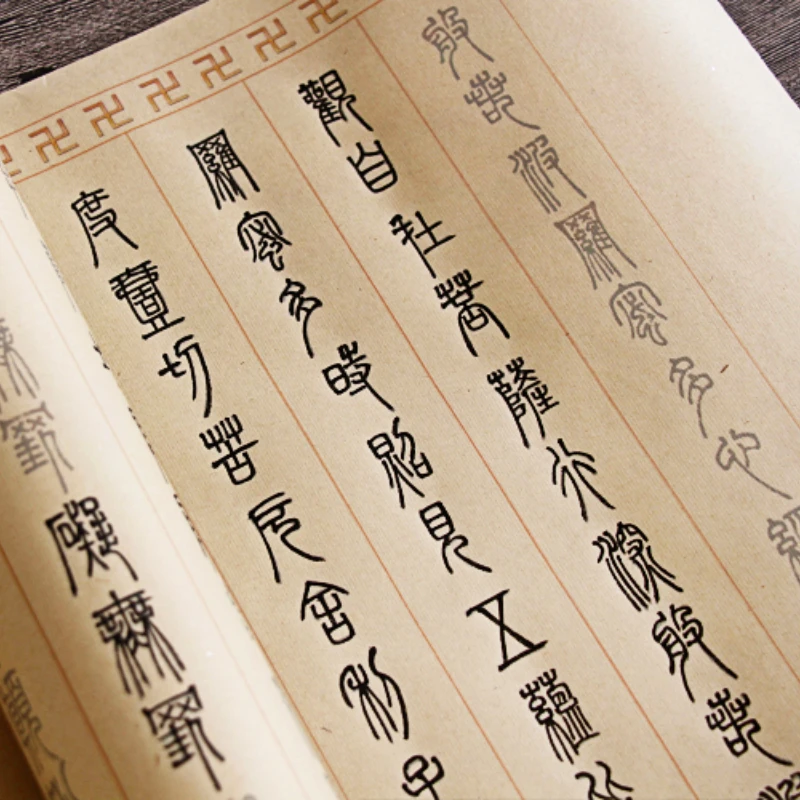 般若波羅蜜多心經
觀自在菩薩行深般若
羅蜜多時照見五蘊
度壹切苦厄舍利子
無罣礙無罣